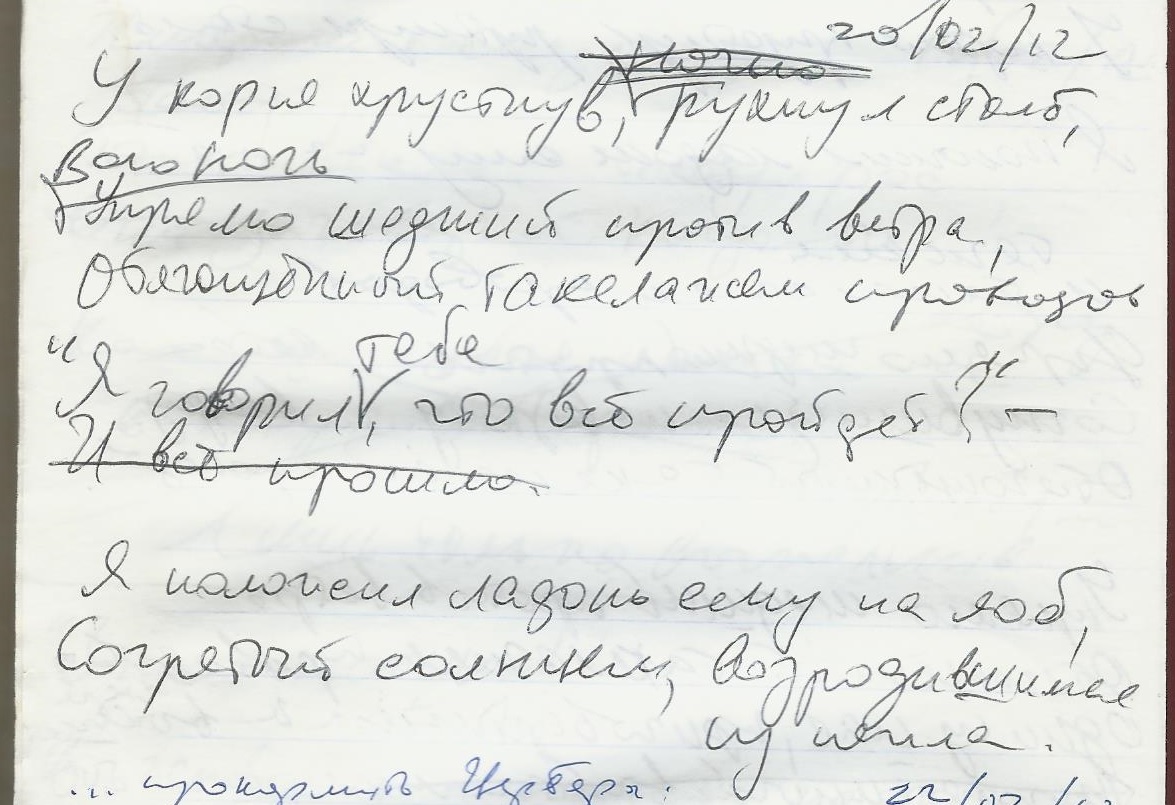 20/02/12
У корня хрустнув, рухнул столб,
Всю ночь
Упрямо шедший против ветра,
Обягощённый такелажем проводов
тебе
"Я говорил, что всё пройдёт" –
И всё прошло.
Я положил ладонь ему на лоб,
Согретый солнцем, возродившимся
из пепла.
... прокормить Цербера.